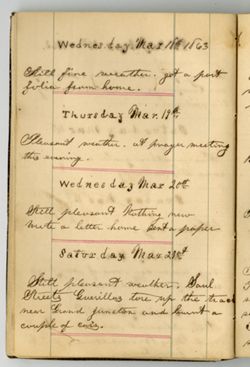 Wednesday Mar 18th 1863
Still fine weather. got a port
folia from home.
Thursday Mar. 19th
Pleasant weather. at prayer meeting
this evening.
Wednesday Mar 20th
Still pleasant Nothing new
wrote a letter home sent a paper
Saturday Mar 21st
Still pleasant weather. Saul
Streets Guerillas tore up the track
near Grand Junction and burnt a
couple of cars.